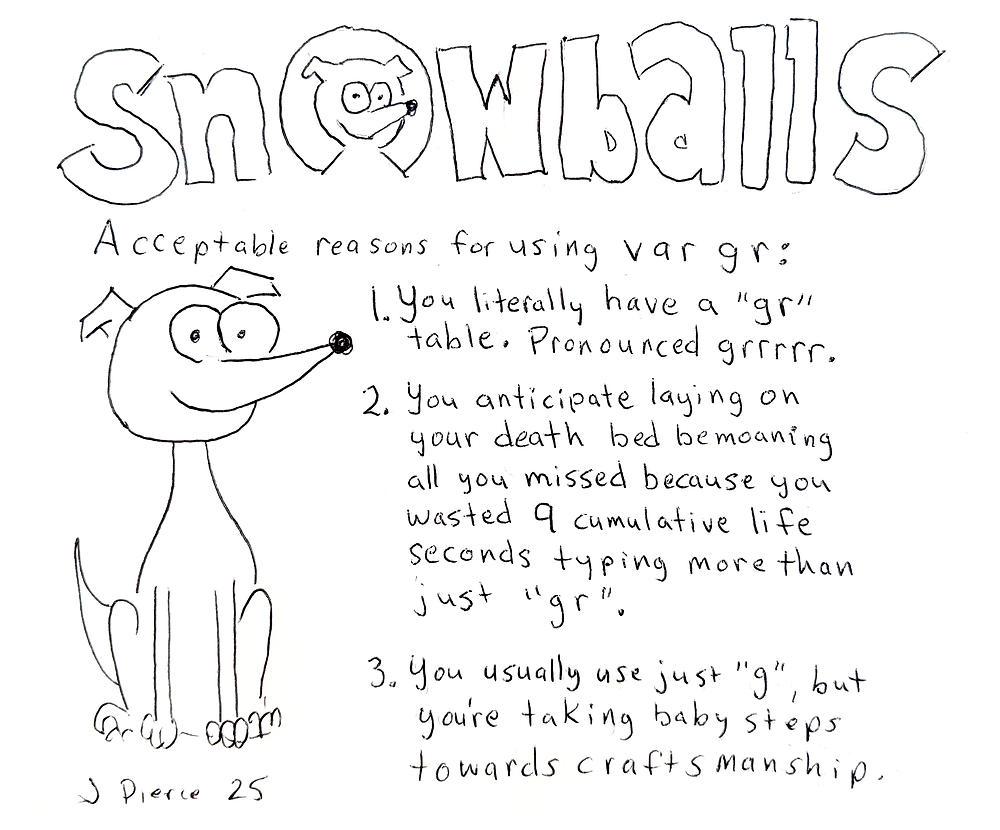 Snowballs
Acceptable reasons for using var gr:
1. You literally have a "gr"
table. Pronounced grrrrr.
2. You anticipate laying on
your death bed bemoaning
all you missed because you
wasted 9 cumulative life
seconds typing more than
just "gr".
3. You usually use just "g", but
you're taking baby steps
towards craftsmanship.
J Pierce 25